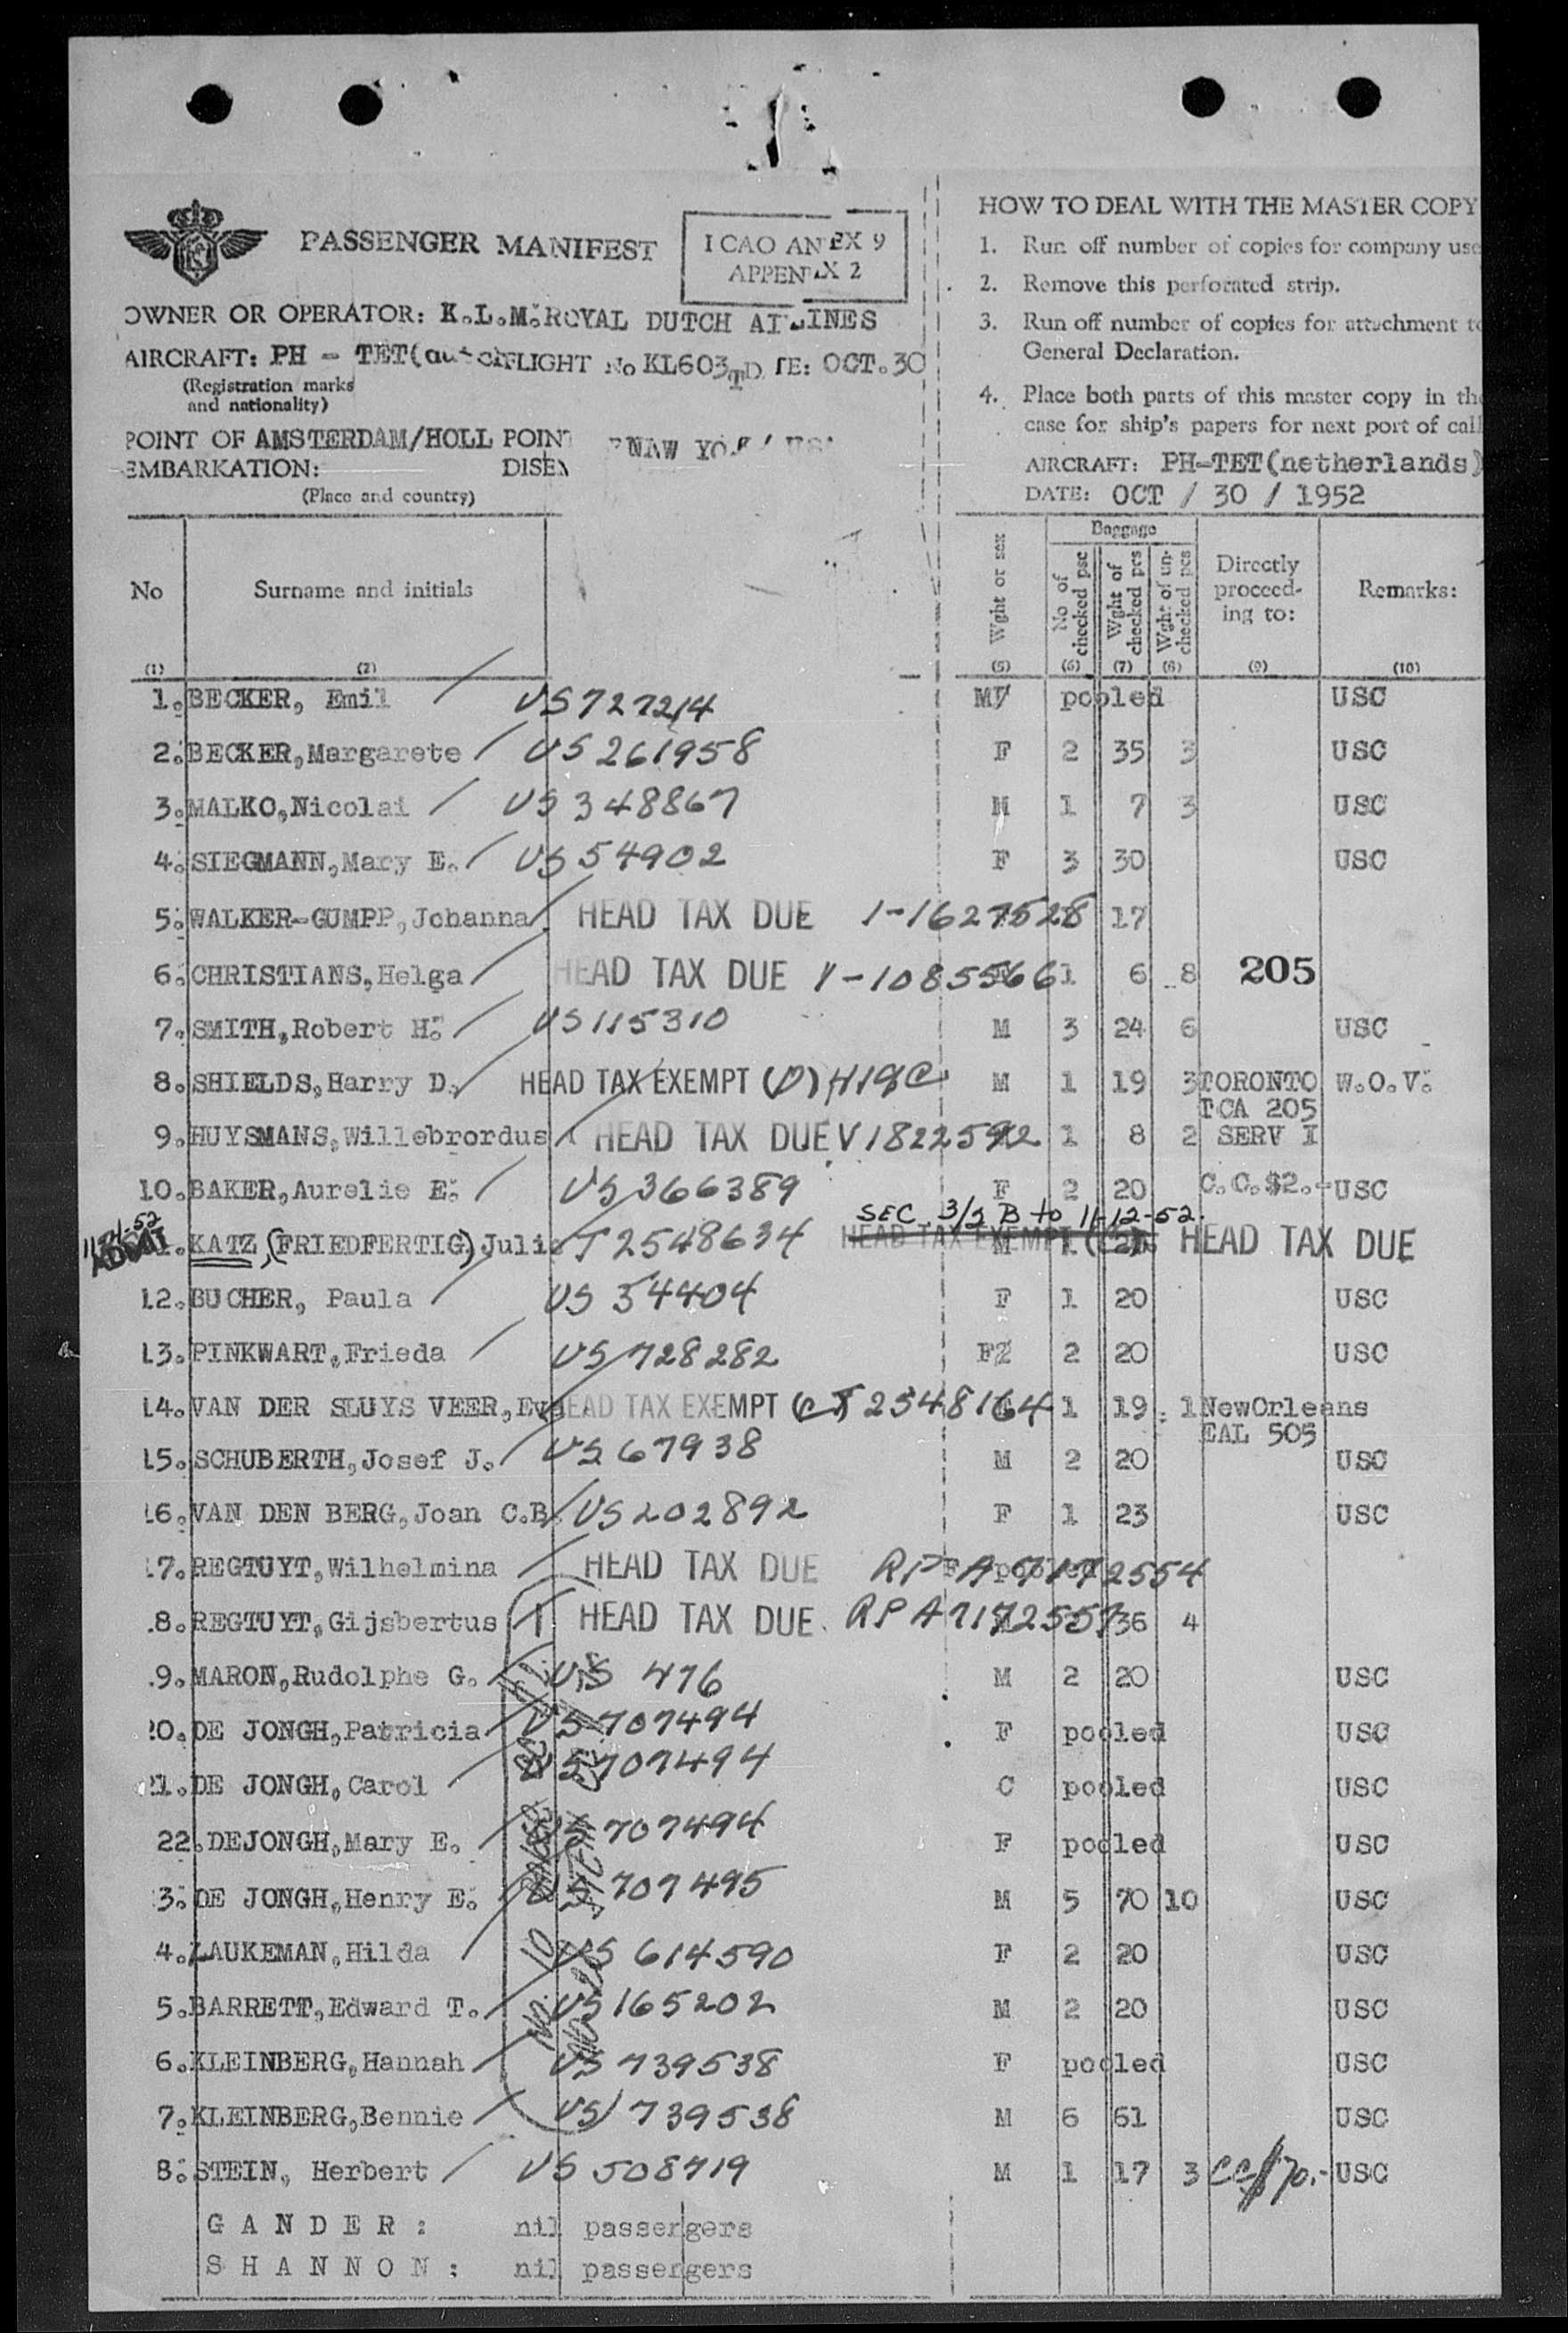 PASSENGER MANIFEST
I CAO ANNEX 9
APPENDIX 2
OWNER OR OPERATOR: K.L.M. ROYAL DUTCH AIRLINES
AIRCRAFT: PH - TET FLIGHT No KL603 DATE: OCT. 30
(Registration marks
and nationality)
POINT OF AMSTERDAM/HOLL POINT
EMBARKATION:
(Place and country)
HOW TO DEAL WITH THE MASTER COPY
1. Run off number of copies for company use
2. Remove this perforated strip.
3. Run off number of copies for attachment to
General Declaration.
4. Place both parts of this master copy in the
case for ship's papers for next port of call
AIRCRAFT: PH-TET(netherlands)
DATE: OCT / 30 / 1952
No Surname and initials Wght or sex Baggage No of checked psc Wght of checked pcs Wght of un-checked pcs Directly proceed-ing to: Remarks:
(1) (2) (5) (6) (7) (8) (9) (10)
1. BECKER, Emil US727214 M pooled USC
2. BECKER, Margarete US 261958 F 2 35 3 USC
3. MALKO, Nicolai US 348867 M 1 7 3 USC
4. SIEGMANN, Mary E. US 54902 F 3 30 USC
5. WALKER-GUMPP, Johanna HEAD TAX DUE 1-1627528 17
6. CHRISTIANS, Helga HEAD TAX DUE V-1085566 1 6 8 205
7. SMITH, Robert H. US115310 M 3 24 6 USC
8. SHIELDS, Harry D. HEAD TAX EXEMPT M 1 19 3 TORONTO W.O.V.
TCA 205
9. HUYSMANS, Willebrordus HEAD TAX DUE V1822592 1 8 2 SERV I
10. BAKER, Aurelie E. US366389 F 2 20 C.C.$2.- USC
SEC 3/2 B to 11-12-52.
KATZ, (FRIEDFERTIG) Julie T2548634 HEAD TAX EXEMPT HEAD TAX DUE
12. BUCHER, Paula US 54404 F 1 20 USC
13. PINKWART, Frieda US 728282 F 2 20 USC
14. VAN DER SLUYS VEER, Eva HEAD TAX EXEMPT T2548164 1 19 1 NewOrleans
EAL 505
15. SCHUBERTH, Josef J. US 67938 M 2 20 USC
16. VAN DEN BERG, Joan C.B. US202892 F 1 23 USC
17. REGTUYT, Wilhelmina HEAD TAX DUE RP A7172554
8. REGTUYT, Gijsbertus HEAD TAX DUE RP A7172557 36 4
9. MARON, Rudolphe G. US 476 M 2 20 USC
20. DE JONGH, Patricia US707494 F pooled USC
21. DE JONGH, Carol US707494 C pooled USC
22. DEJONGH, Mary E. US 707494 F pooled USC
3. DE JONGH, Henry E. US 707495 M 5 70 10 USC
4. LAUKEMAN, Hilda US 614590 F 2 20 USC
5. BARRETT, Edward T. US165202 M 2 20 USC
6. KLEINBERG, Hannah US 739538 F pooled USC
7. KLEINBERG, Bennie US 739538 M 6 61 USC
8. STEIN, Herbert US 508719 M 1 17 3 CC $70.- USC
GANDER: nil passengers
SHANNON: nil passengers